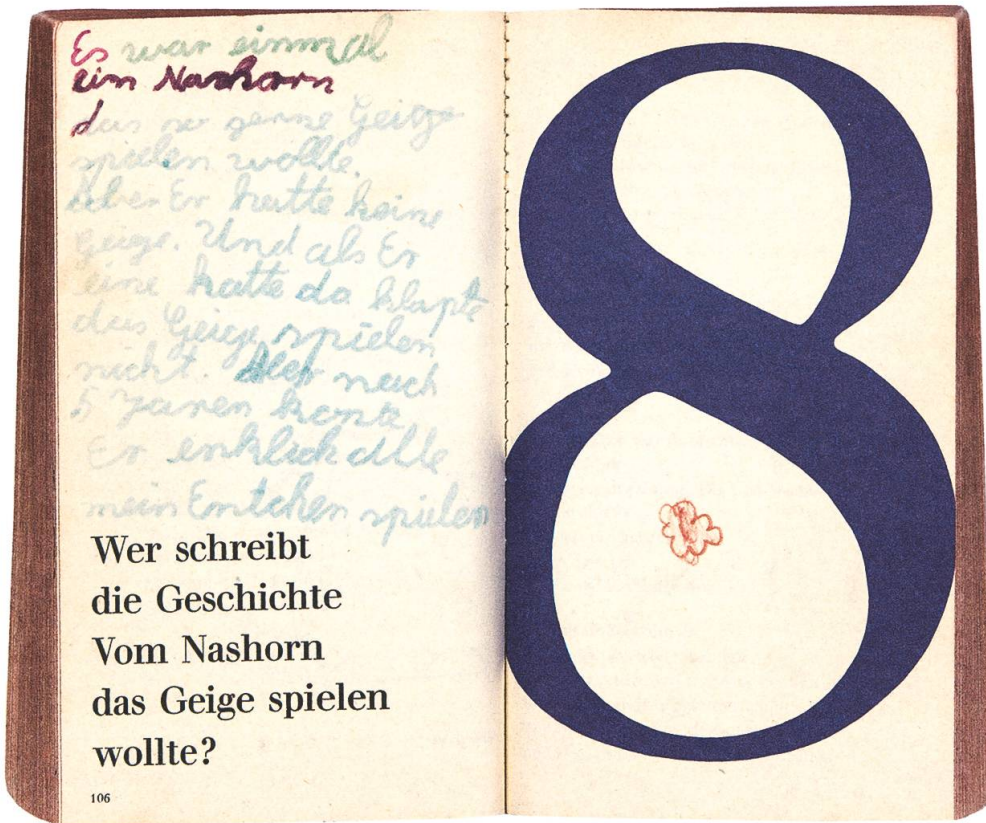 Es war einmal
ein Nashorn
das so gerne Geige
spielen wollte.
Aber Er hatte keine
Geige. Und als Er
eine hatte da klapte
das Geige spielen
nicht. Aber nach
5 Jaren konte
Er enklich Alle
mein Entchen spielen
Wer schreibt
die Geschichte
Vom Nashorn
das Geige spielen
wollte?
106
8